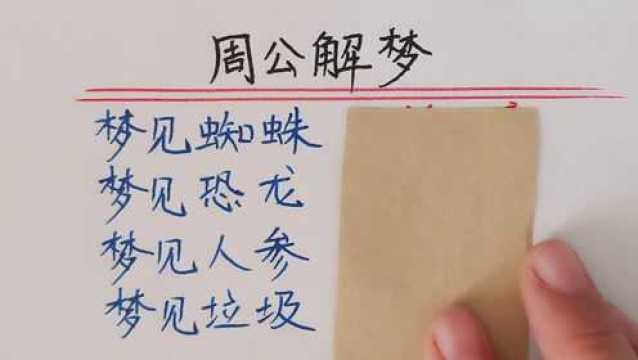 周公解梦
梦见蜘蛛
梦见恐龙
梦见人参
梦见垃圾